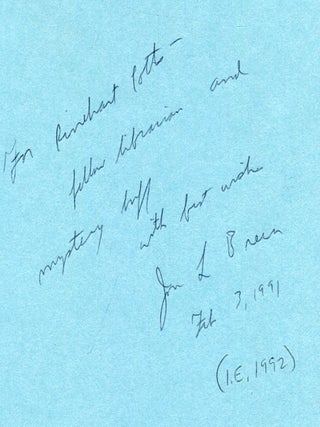 For Rinehart Potts –
fellow librarian and
mystery buff
with best wishes
Jon L Breen
Feb 3, 1991
(I.E, 1992)